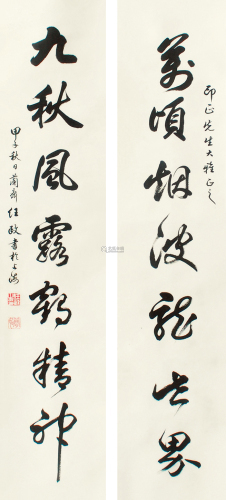 邵正先生大雅正之
萬頃烟波龍世界
九秋風露鶴精神
甲子秋日蘭齋任政書於上海